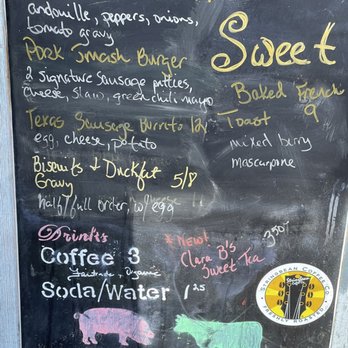 andouille, peppers, onions,
tomato gravy
Pork Smash Burger
2 signature sausage patties,
cheese, slaw, green chili mayo
Texas Sausage Burrito 12
egg, cheese, potato
Biscuits + Duckfat 5/8
Gravy
half/full order, w/ egg
Drinks
Coffee 3
Fairtrade + Organic
Soda/Water 1 25
Sweet
Baked French
Toast 9
mixed berry
mascarpone
* New! 3.50
Clara B's
Sweet Tea
Stringbean Coffee Co.